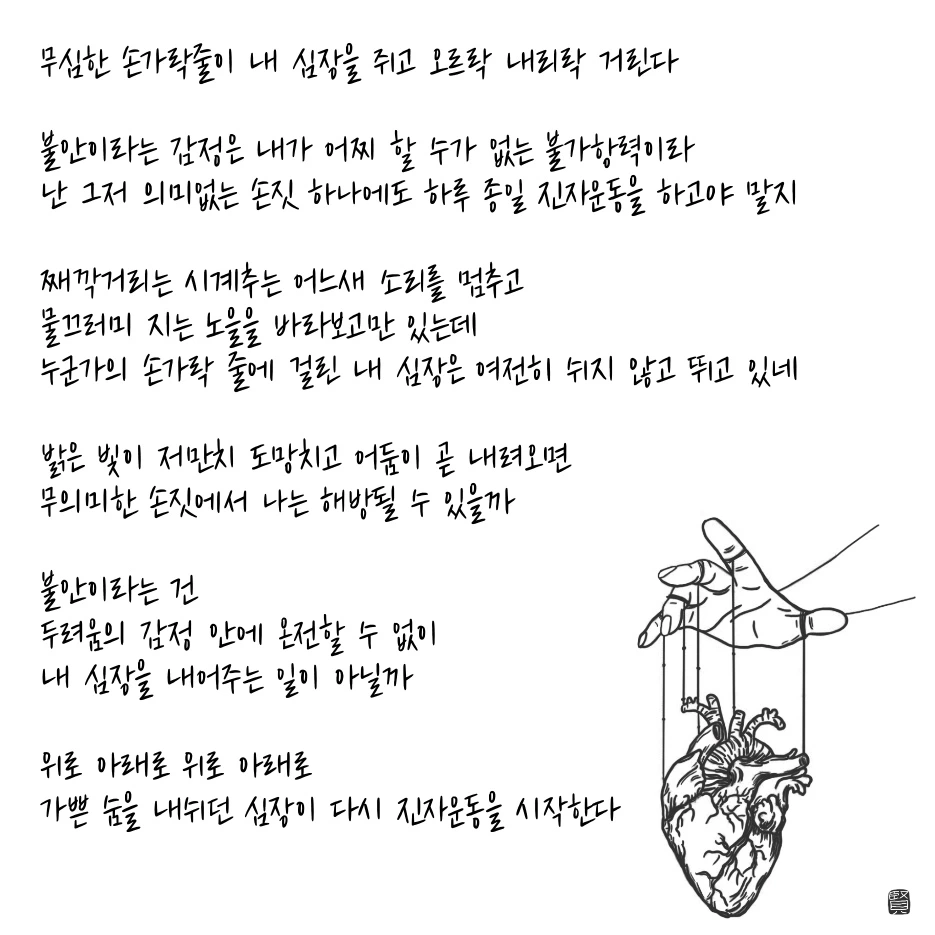 무심한 손가락줄이 내 심장을 쥐고 오르락 내리락 거린다
불안이라는 감정은 내가 어찌 할 수가 없는 불가항력이라
난 그저 의미없는 손짓 하나에도 하루 종일 진자운동을 하고야 말지
째깍거리는 시계추는 어느새 소리를 멈추고
물끄러미 지는 노을을 바라보고만 있는데
누군가의 손가락 줄에 걸린 내 심장은 여전히 쉬지 않고 뛰고 있네
밝은 빛이 저만치 도망치고 어둠이 곧 내려오면
무의미한 손짓에서 나는 해방될 수 있을까
불안이라는 건
두려움의 감정 안에 온전할 수 없이
내 심장을 내어주는 일이 아닐까
위로 아래로 위로 아래로
가쁜 숨을 내쉬던 심장이 다시 진자운동을 시작한다
賢